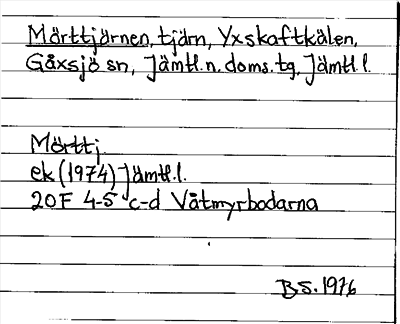 Mörttjärnen, tjärn, Yxskaftkälen,
Gåxsjö sn, Jämtl.n.doms.tg, Jämtl.l.
Mörttj
ek (1974) Jämtl.l.
20F 4-5 c-d Våtmyrbodarna
B S. 1976